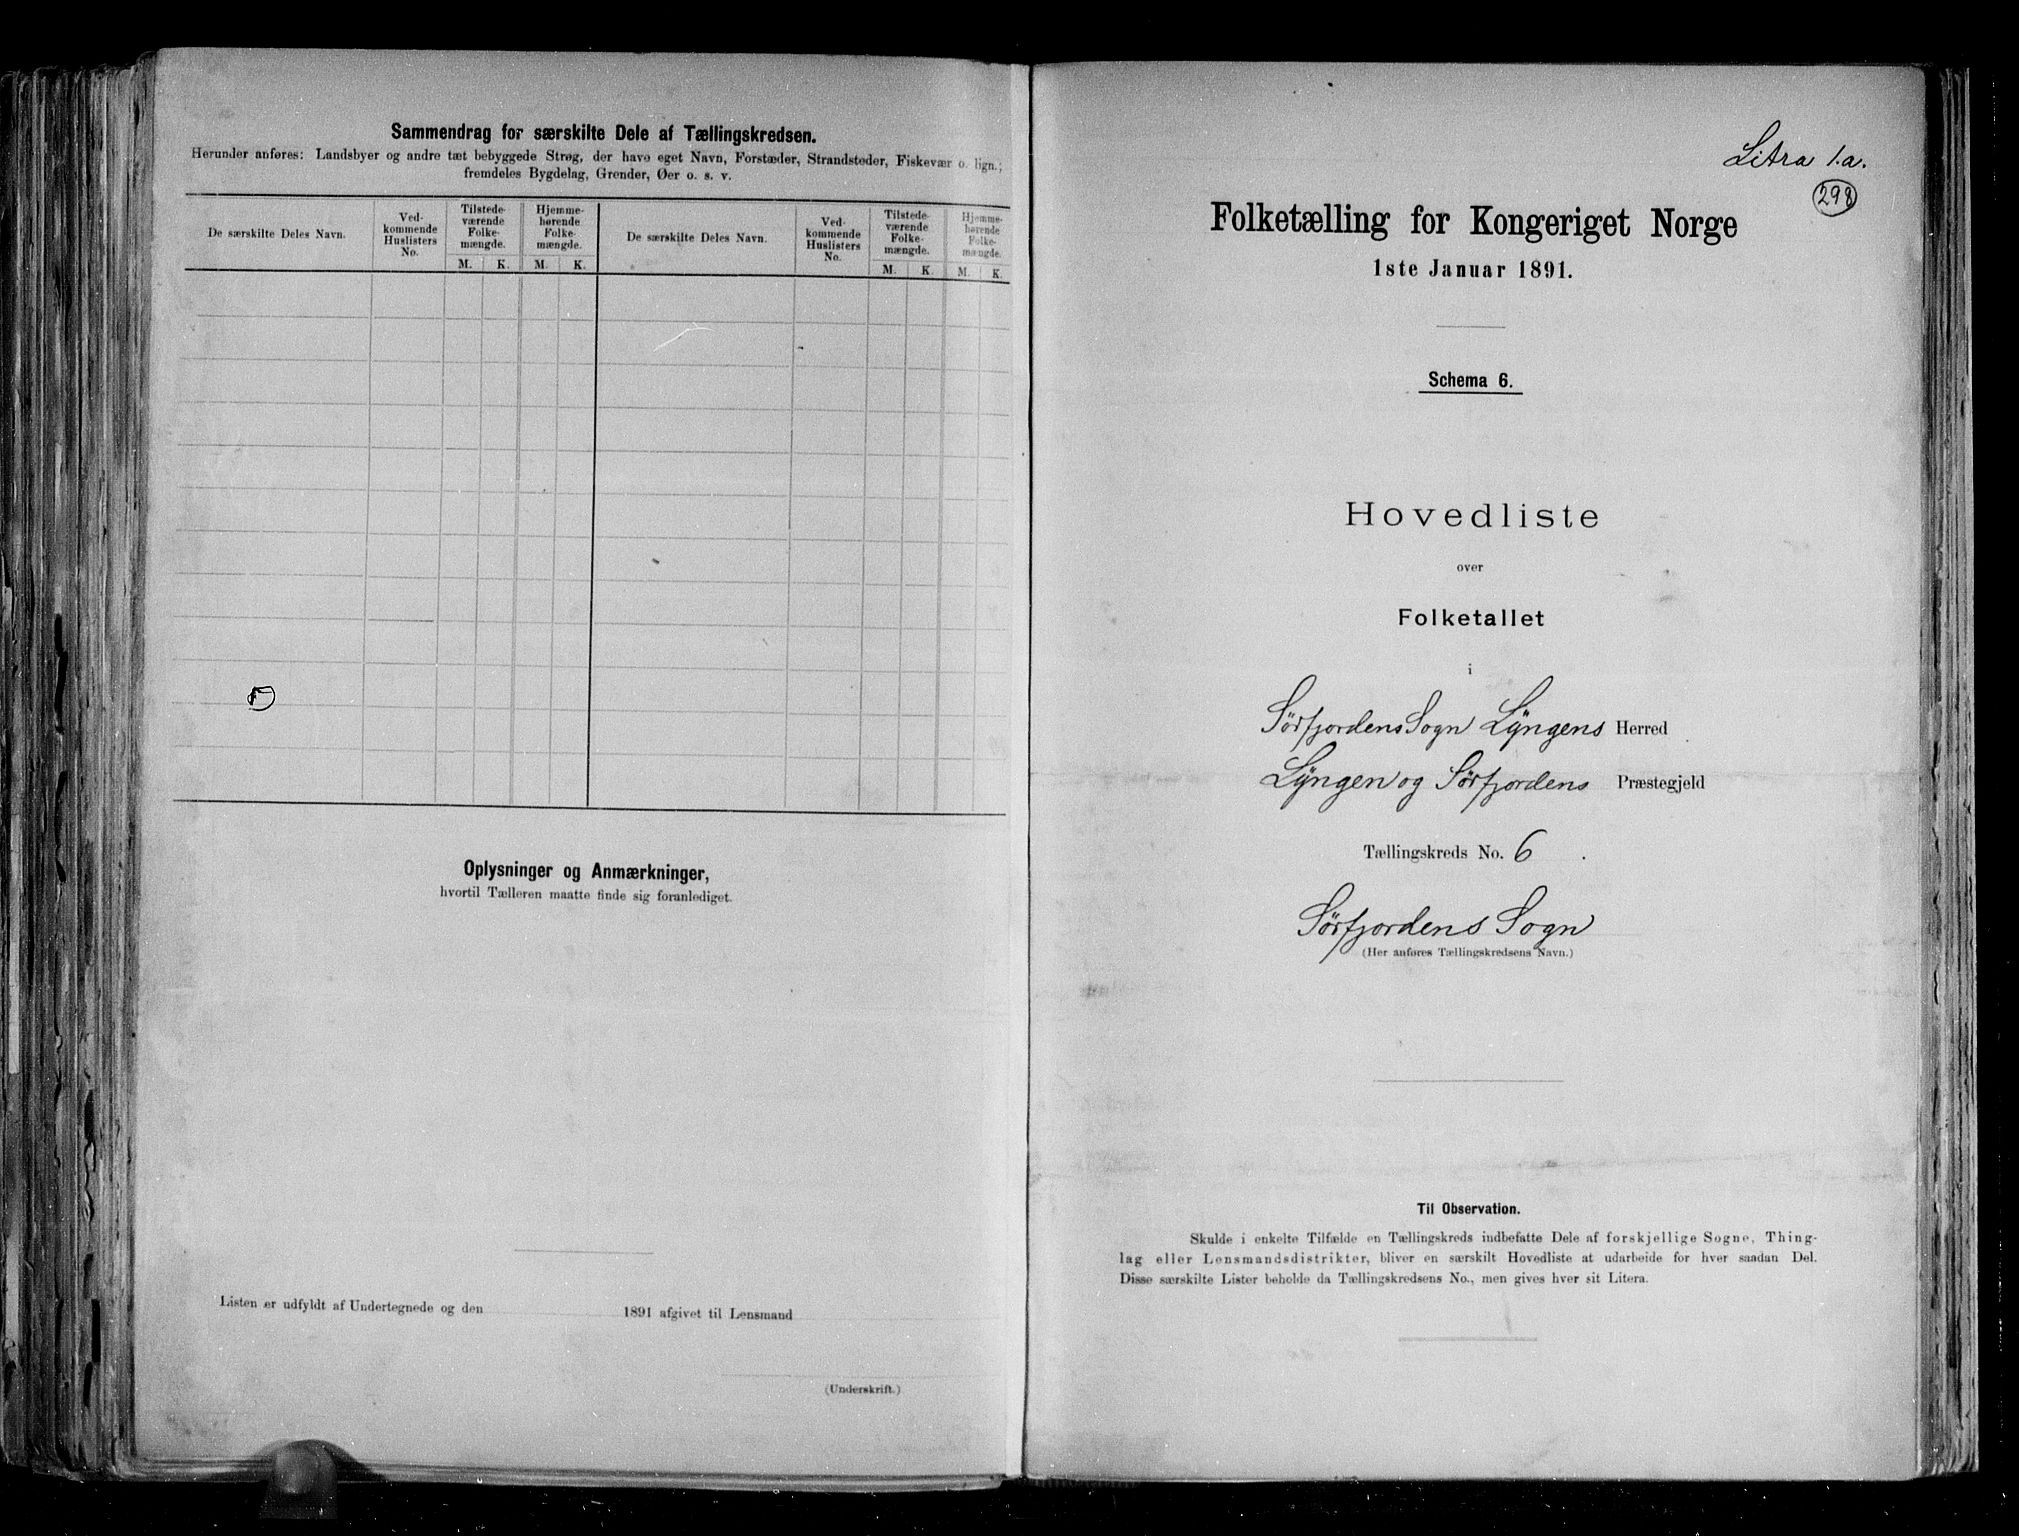 Sammendrag for særskilte Dele af Tællingskredsen.
Herunder anføres: Landsbyer og andre tæt bebyggede Strøg, der have eget Navn, Forstæder, Strandsteder, Fiskevær o. lign.;
fremdeles Bygdelag, Grender, Øer o. s. v.
De særskilte Deles Navn.
Ved-
kommende
Huslisters
No.
Tilstede-
værende
Folke-
mængde.
M. K.
Hjemme-
hørende
Folke-
mængde.
M. K.
De særskilte Deles Navn.
Ved-
kommende
Huslisters
No.
Tilstede-
værende
Folke-
mængde.
M. K.
Hjemme-
hørende
Folke-
mængde.
M. K.
Oplysninger og Anmærkninger,
hvortil Tælleren maatte finde sig foranlediget.
Listen er udfyldt af Undertegnede og den 1891 afgivet til Lensmand
(Underskrift.)
Litra 1.a.
298
Folketælling for Kongeriget Norge
1ste Januar 1891.
Schema 6.
Hovedliste
over
Folketallet
i
Sørfjordens Sogn Lyngens Herred
Lyngen og Sørfjordens Præstegjeld
Tællingskreds No. 6.
Sørfjordens Sogn
(Her anføres Tællingskredsens Navn.)
Til Observation.
Skulde i enkelte Tilfælde en Tællingskreds indbefatte Dele af forskjellige Sogne, Thing-
lag eller Lensmandsdistrikter, bliver en særskilt Hovedliste at udarbeide for hver saadan Del.
Disse særskilte Lister beholde da Tællingskredsens No., men gives hver sit Litera.